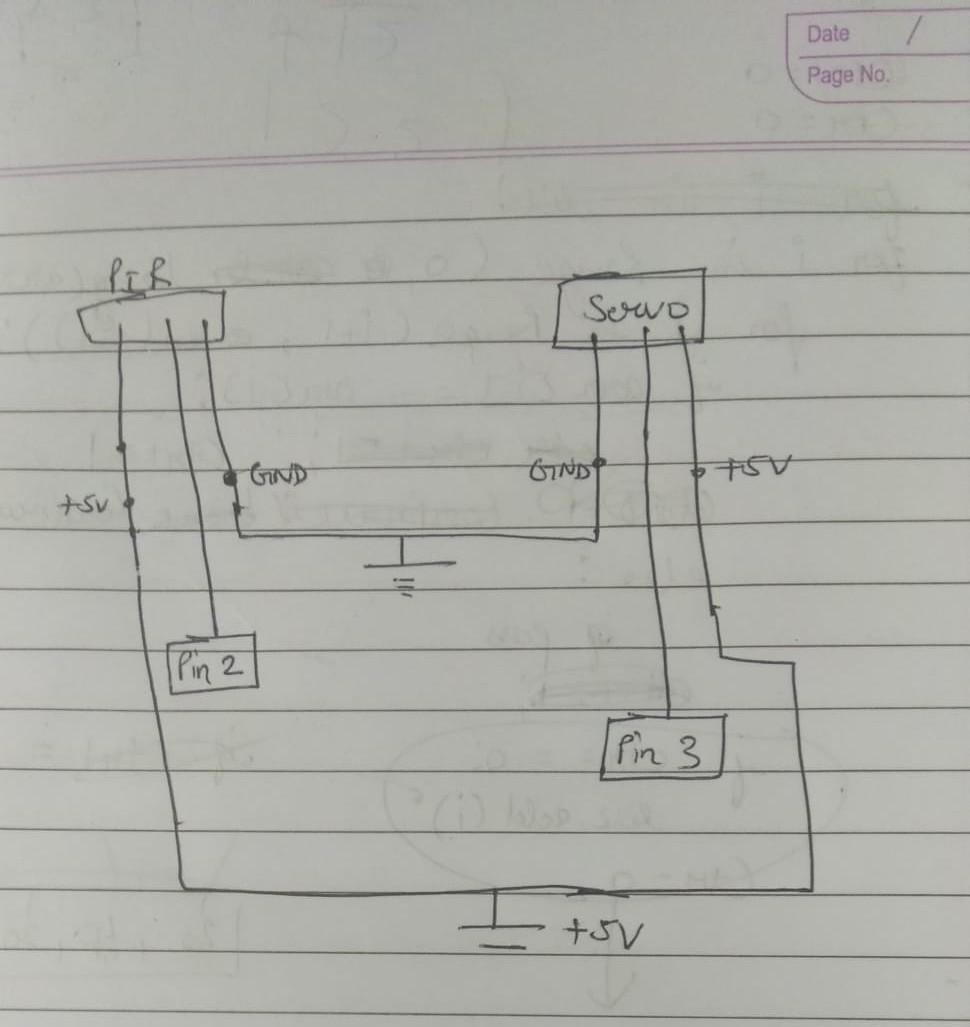 Date /
Page No.
PIR
Servo
GND
GND
+5V
+5V
Pin 2
Pin 3
+5V